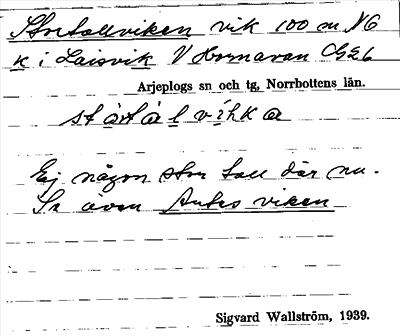 Stortallviken vik 100 m NO
k i Laisvik V Hornavan
Arjeplogs sn och tg, Norrbottens län.
Ej någon stor tall där nu.
Se även Antes viken
Sigvard Wallström, 1939.